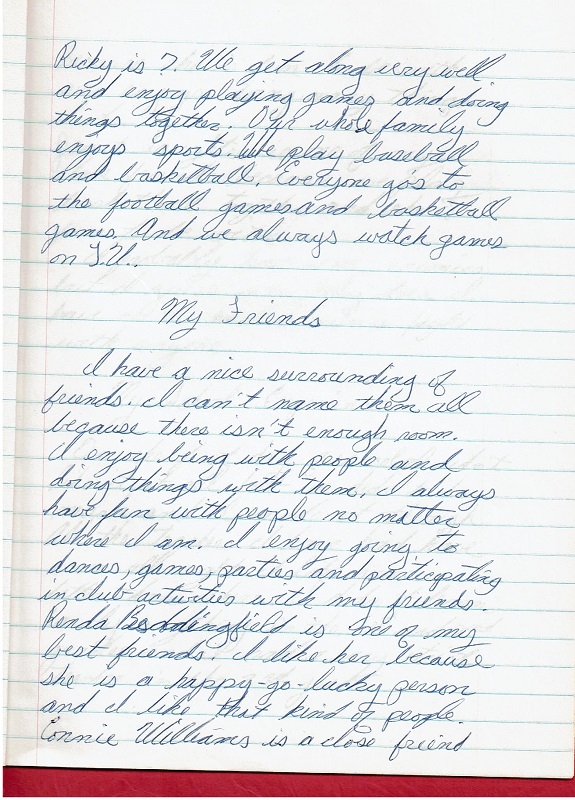 Ricky is 7. We get along very well
and enjoy playing games and doing
things together. Our whole family
enjoys sports. We play baseball
and basketball. Everyone go's to
the football games and basketball
games. And we always watch games
on T.V..
My Friends
I have a nice surrounding of
friends. I can't name them all
because there isn't enough room.
I enjoy being with people and
doing things with them. I always
have fun with people no matter
where I am. I enjoy going to
dances, games, parties and participating
in club activities with my friends.
Renda Beddingfield is one of my
best friends. I like her because
she is a happy-go-lucky person
and I like that kind of people.
Connie Williams is a close friend